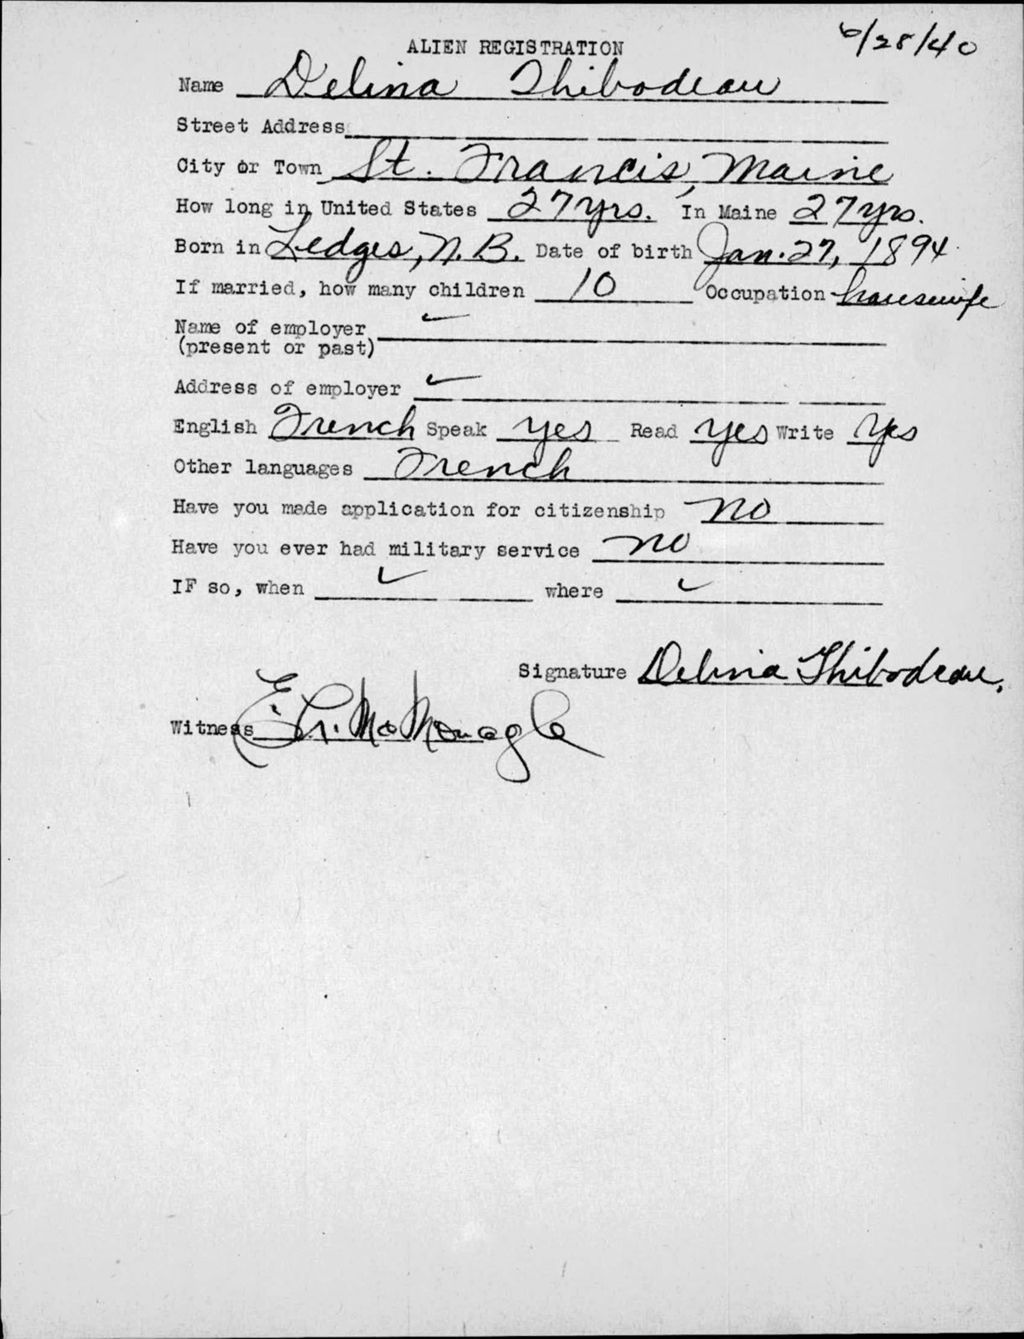 6/28/40
ALIEN REGISTRATION
Name Delina Thibodeau
Street Address
City or Town St. Francis, Maine
How long in United States 27 yrs. In Maine 27 yrs.
Born in Ledges, N.B. Date of birth Jan. 27, 1894
If married, how many children 10 Occupation housewife
Name of employer
(present or past)
Address of employer
English French Speak yes Read yes Write yes
Other languages French
Have you made application for citizenship no
Have you ever had military service no
IF so, when where
Signature Delina Thibodeau.
Witness McMonagle